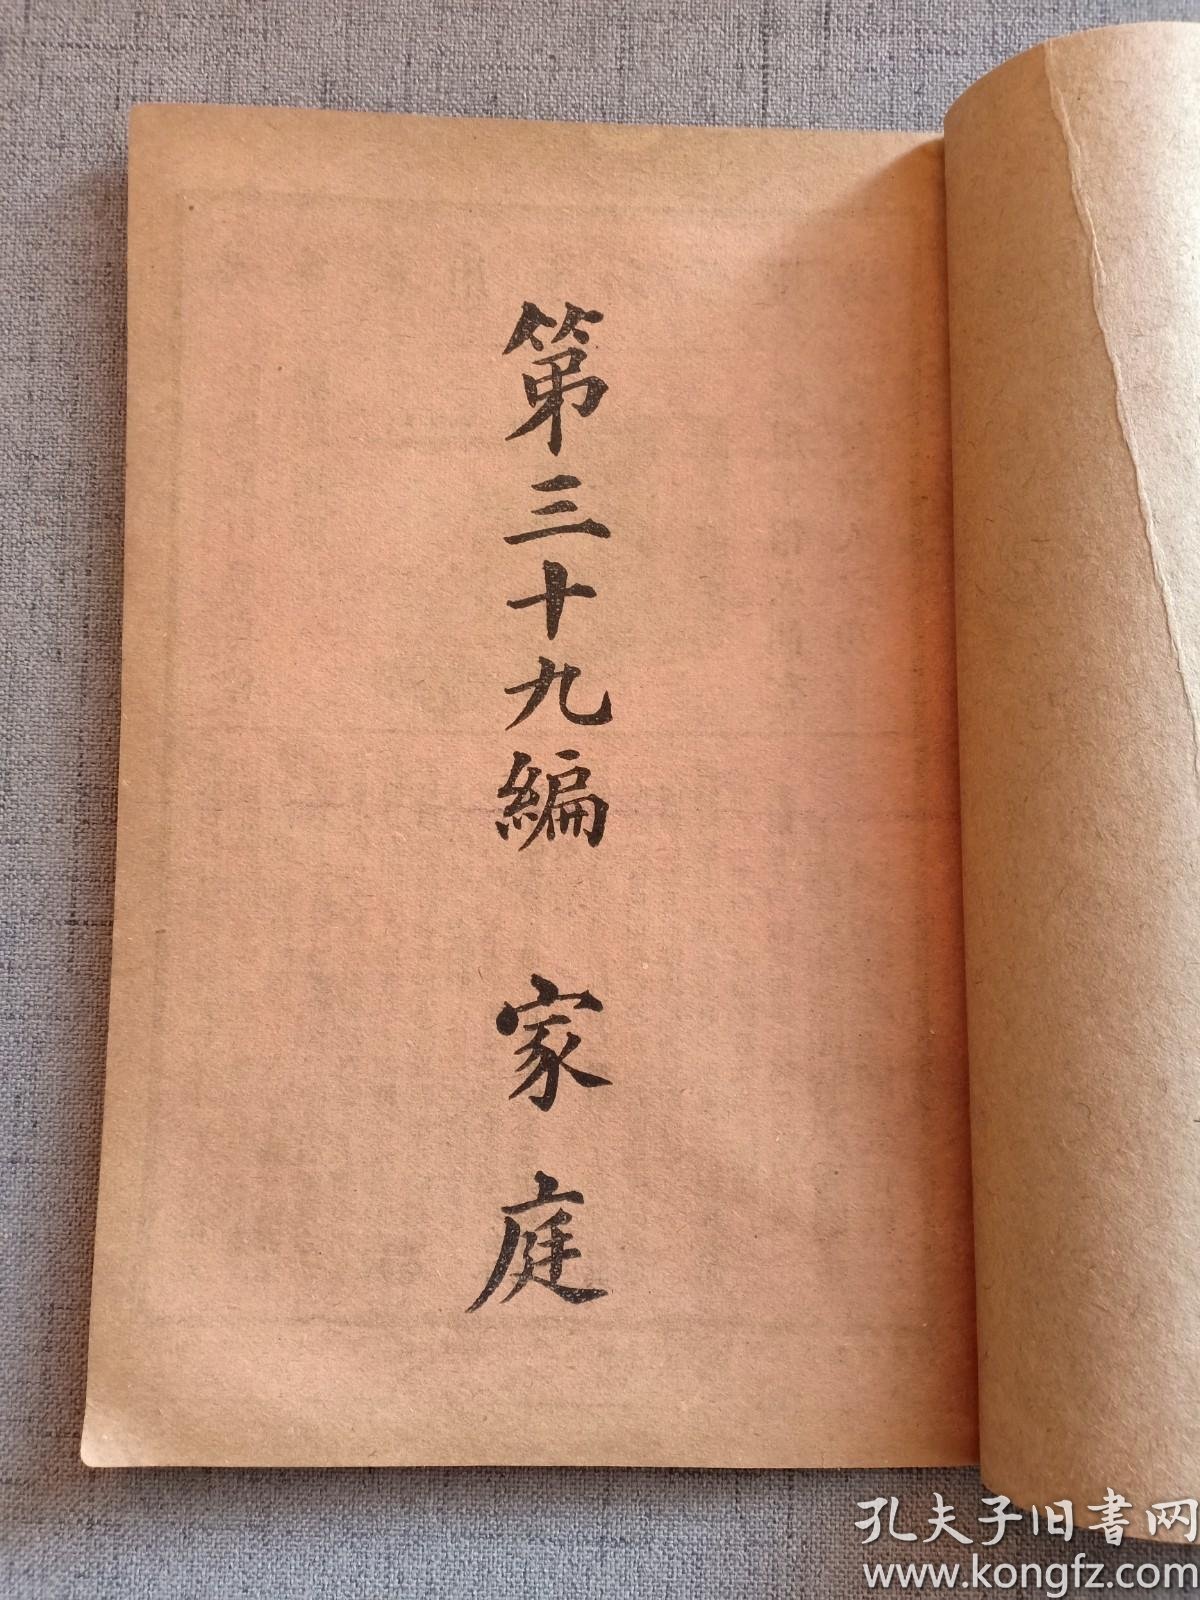 第三十九編 家庭
孔夫子旧書网
www.kongfz.com